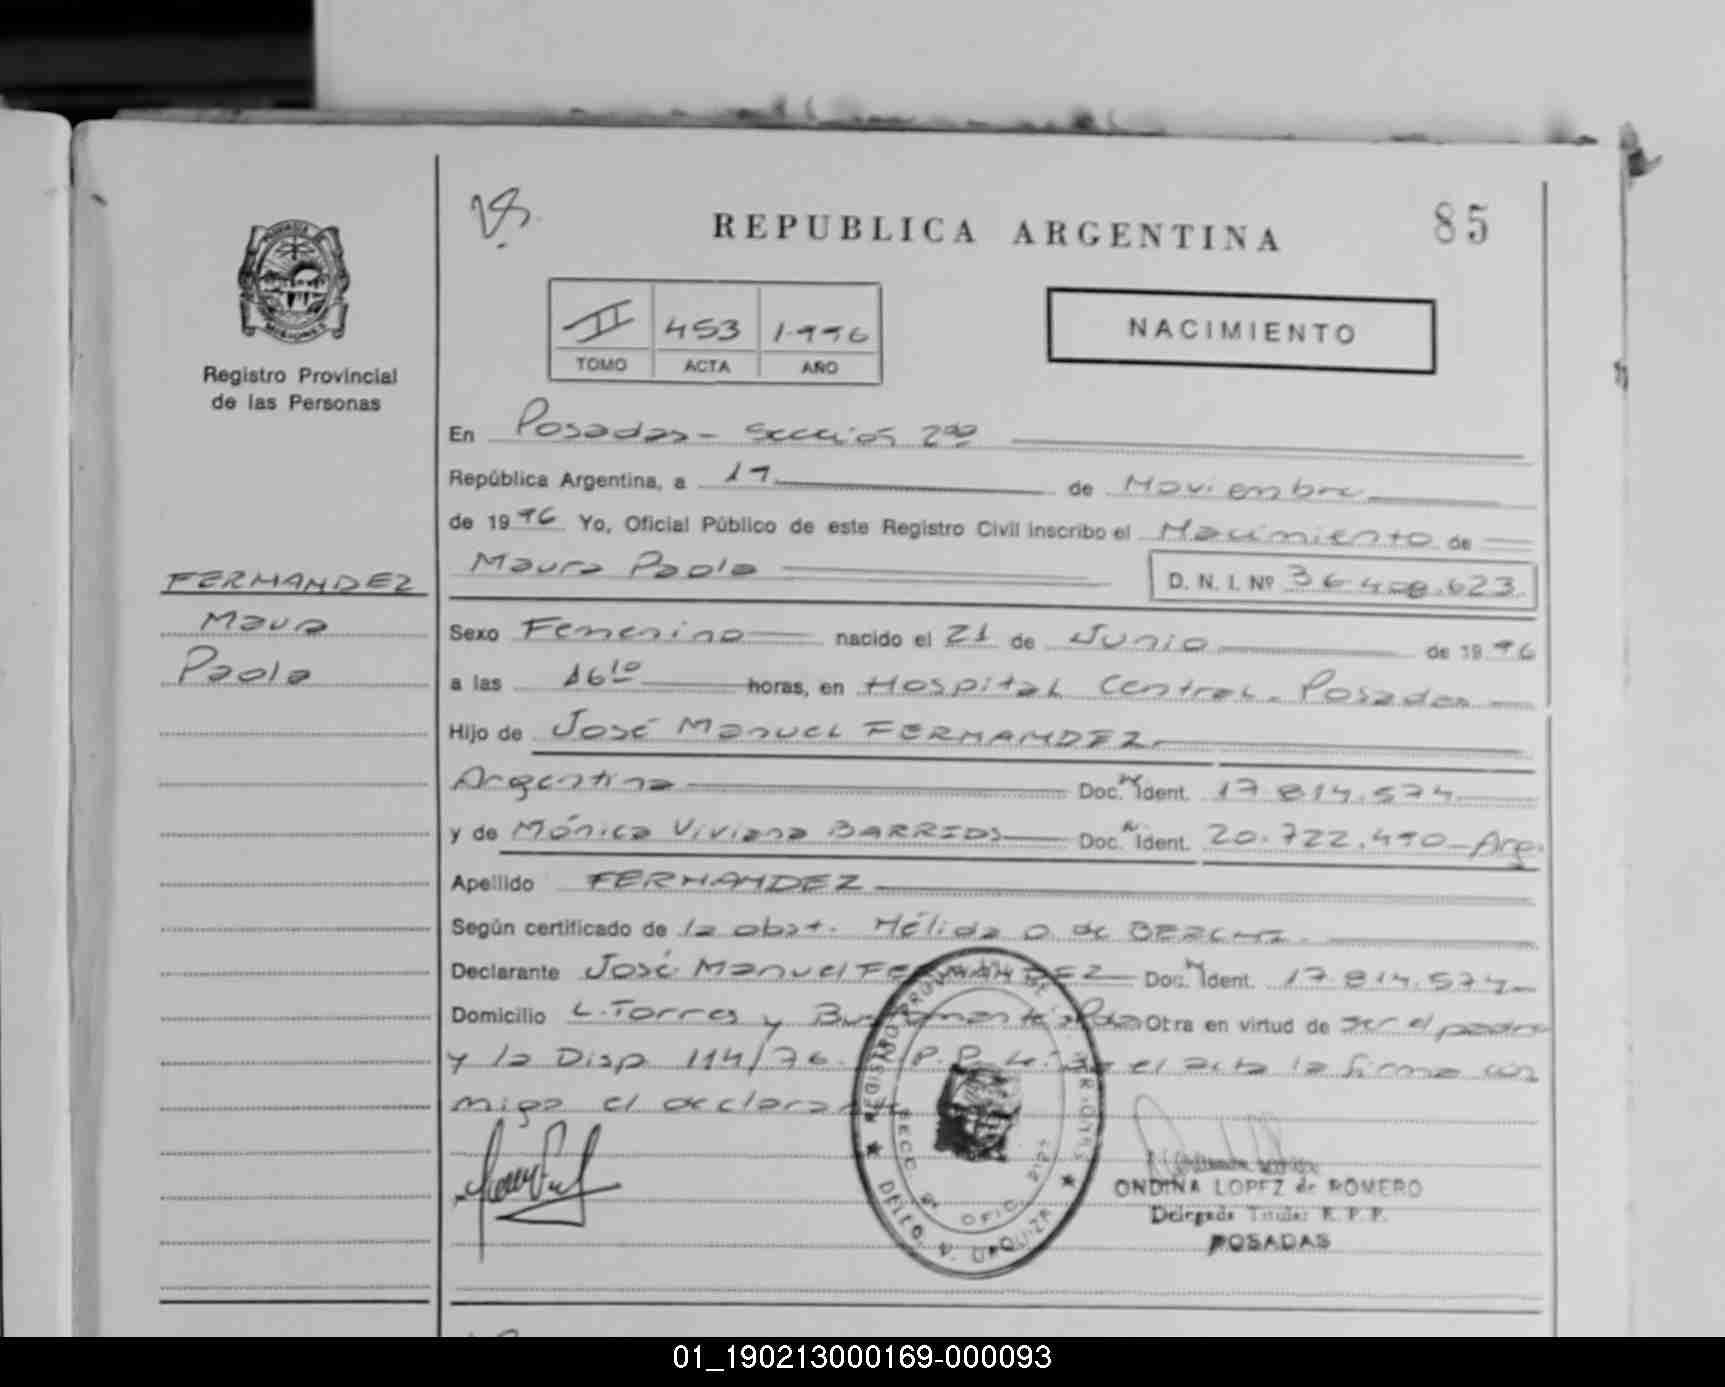 85
REPUBLICA ARGENTINA
MISIONES
Registro Provincial
de las Personas
II 453 1.996
TOMO ACTA AÑO
NACIMIENTO
En Posadas - sección 2da
República Argentina, a 19 de Noviembre
de 1996 Yo, Oficial Público de este Registro Civil inscribo el Nacimiento de
Maura Paola D. N. I. Nº 36.408.623
FERNANDEZ
Maura
Paola
Sexo Femenino nacido el 21 de Junio de 1996
a las 16 10 horas, en Hospital Central - Posadas
Hijo de José Manuel FERNANDEZ
Argentina Doc. N Ident. 17.814.574
y de Mónica Viviana BARRIOS Doc. N Ident. 20.722.490 - Arg.
Apellido FERNANDEZ
Según certificado de la obst. Nélida O. de
Declarante José Manuel FERNANDEZ Doc. N Ident. 17.814.574
Domicilio L. Torres y Bustamante Pdas Otra en virtud de ser el padre
y la Disp 114/76. R.P.P. Leída el acta la firma con
migo el declarante
REGISTRO PROVINCIAL DE
SECC. 2ª
DPTO. V. URQUIZA
ONDINA LOPEZ de ROMERO
Delegada Titular R. P. P.
POSADAS
01_190213000169-000093